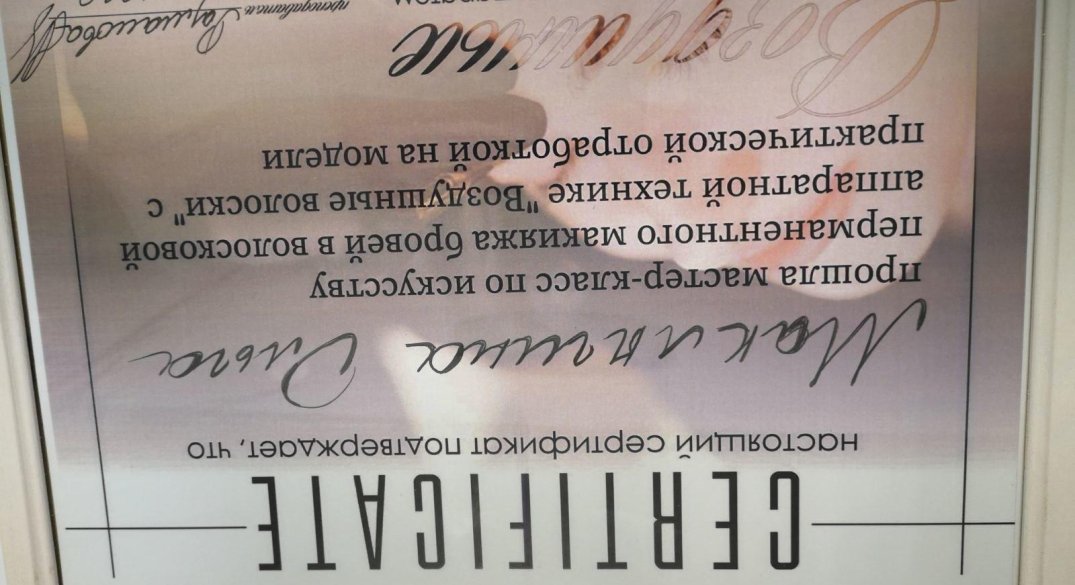 CERTIFICATE
настоящий сертификат подтверждает, что
Ольга
прошла мастер-класс по искусству
перманентного макияжа бровей в волосковой
аппаратной технике "Воздушные волоски" с
практической отработкой на модели
Воздушные
преподаватель